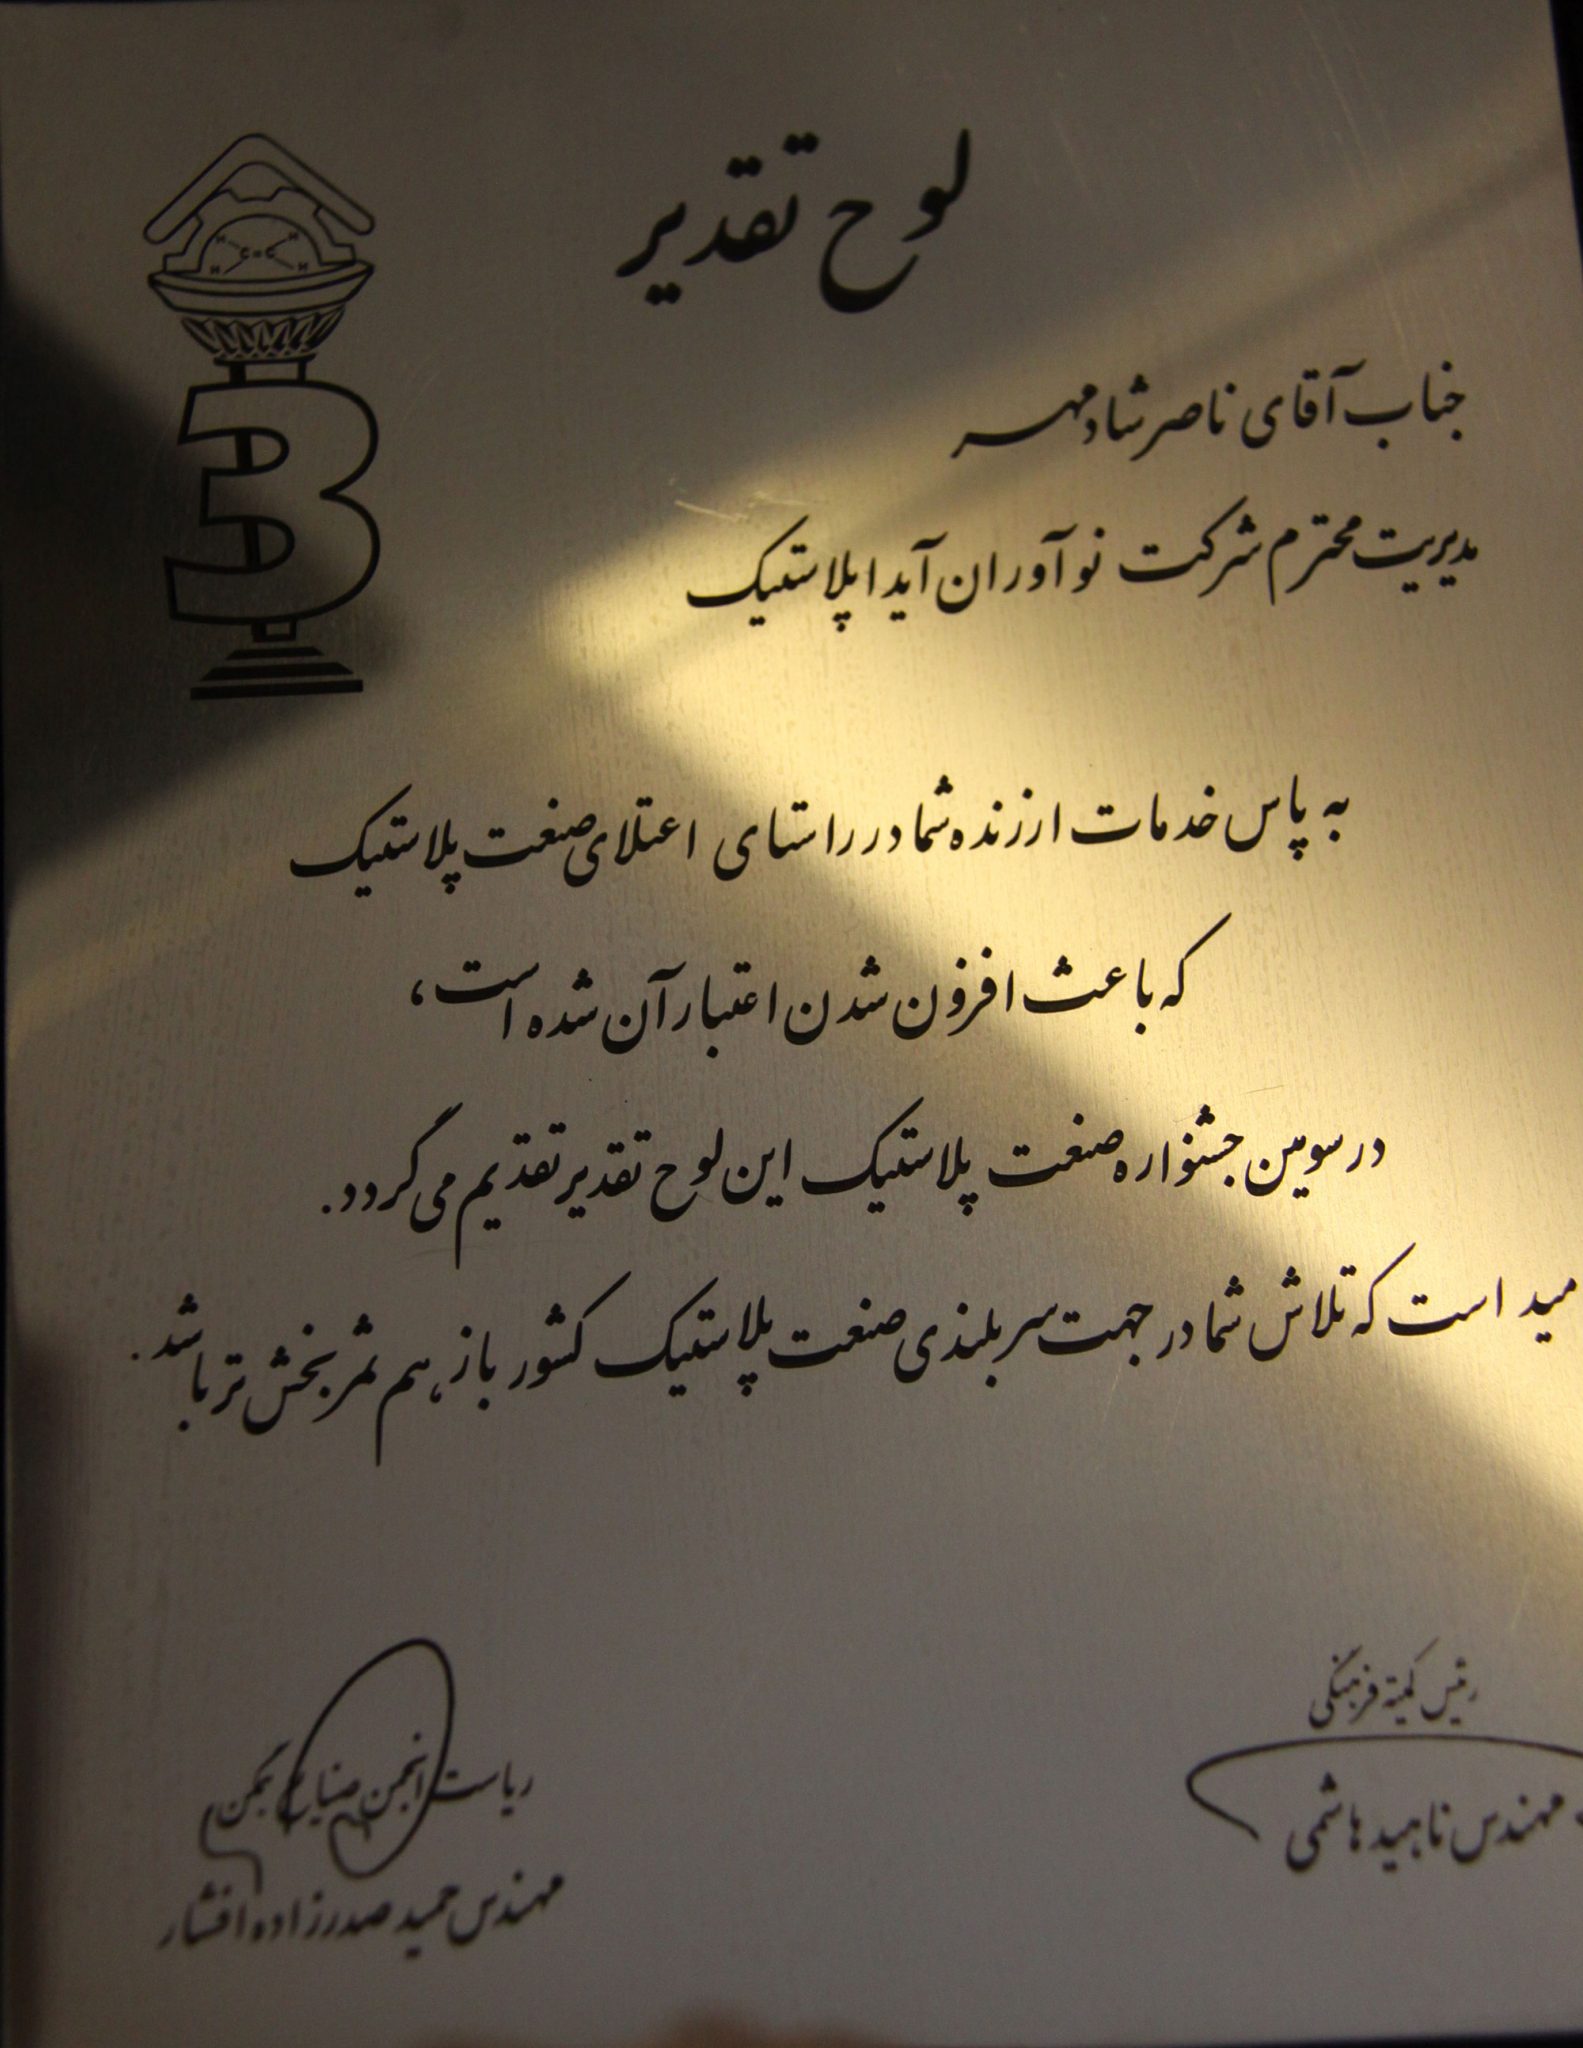 لوح تقدیر
H H
C=C
H H
3
جناب آقای ناصر شادمهر
مدیریت محترم شرکت نوآوران آیدا پلاستیک
به پاس خدمات ارزنده شما در راستای اعتلای صنعت پلاستیک
که باعث افزون شدن اعتبار آن شده است،
در سومین جشنواره صنعت پلاستیک این لوح تقدیر تقدیم می گردد.
مید است که تلاش شما در جهت سربلندی صنعت پلاستیک کشور باز هم ثمربخش تر باشد.
رئیس کمیته فرهنگی
مهندس ناهید هاشمی
ریاست انجمن صنایع همگن
مهندس حمید صدرزاده افشار